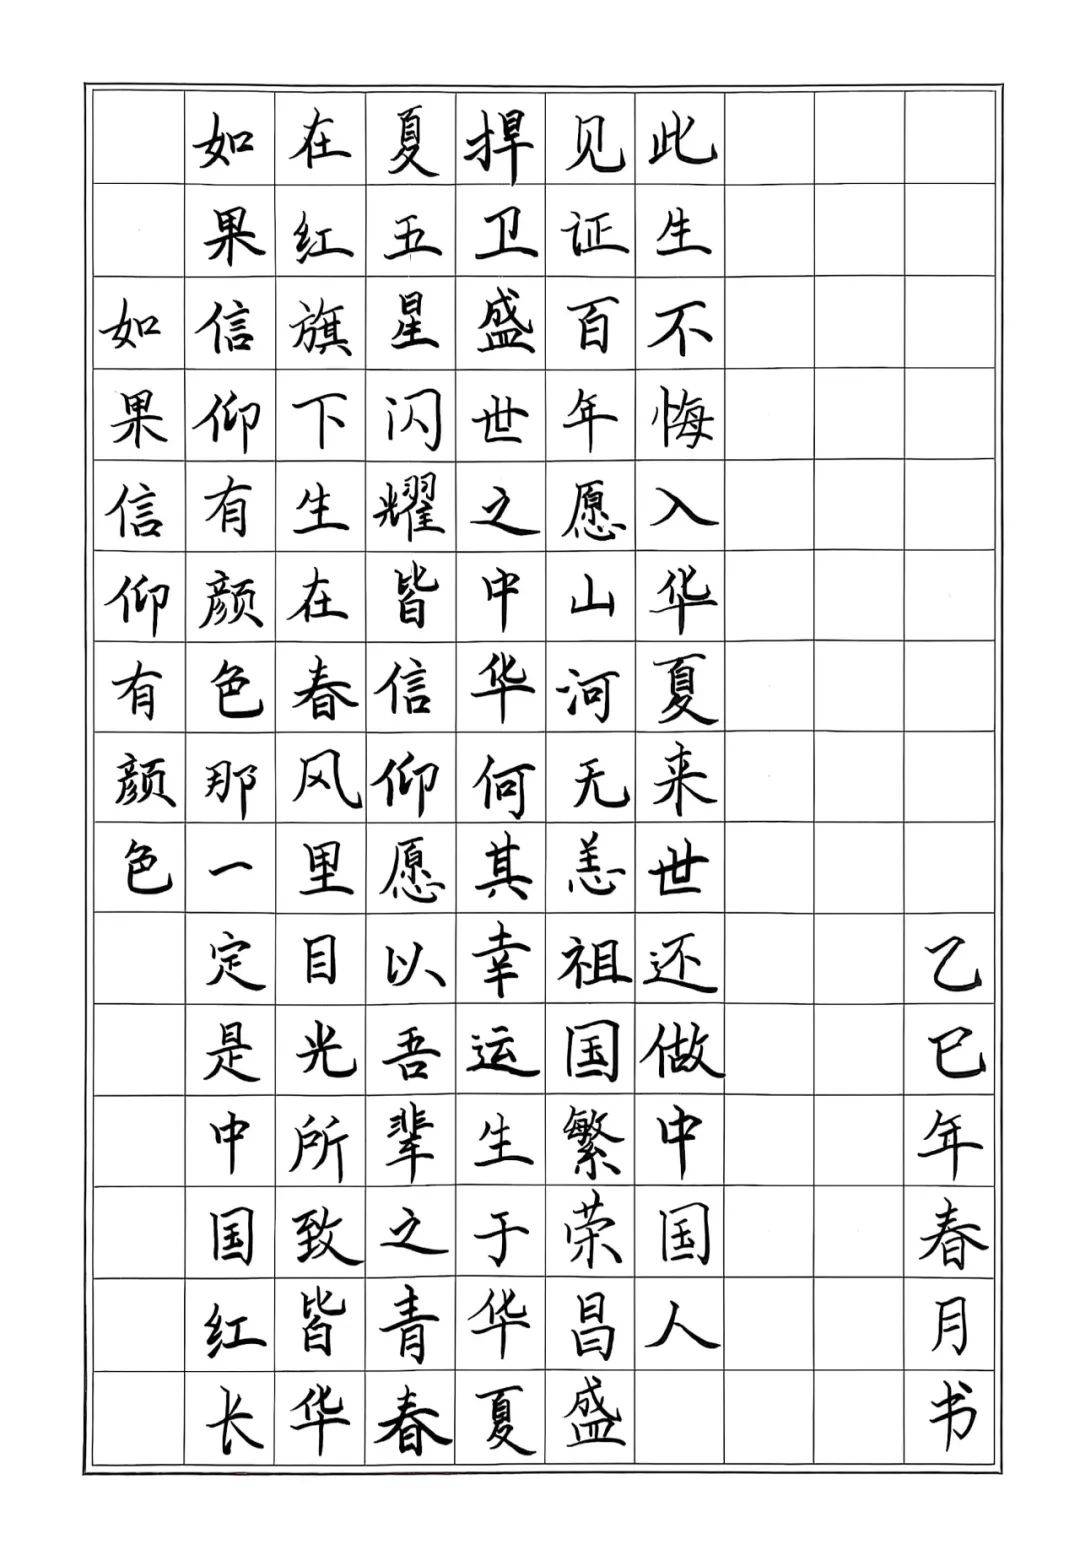 如果信仰有颜色
如果信仰有颜色那一定是中国红长
在红旗下生在春风里目光所致皆华
夏五星闪耀皆信仰愿以吾辈之青春
捍卫盛世之中华何其幸运生于华夏
见证百年愿山河无恙祖国繁荣昌盛
此生不悔入华夏来世还做中国人
乙巳年春月书